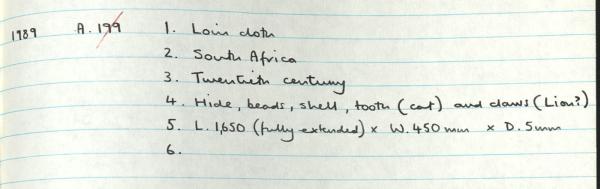 1989 A.199 1. Loin cloth
2. South Africa
3. Twentieth century
4. Hide, beads, shell, tooth (cat) and claws (Lion?)
5. L. 1,650 (fully extended) x W. 450 mm x D. 5mm
6.